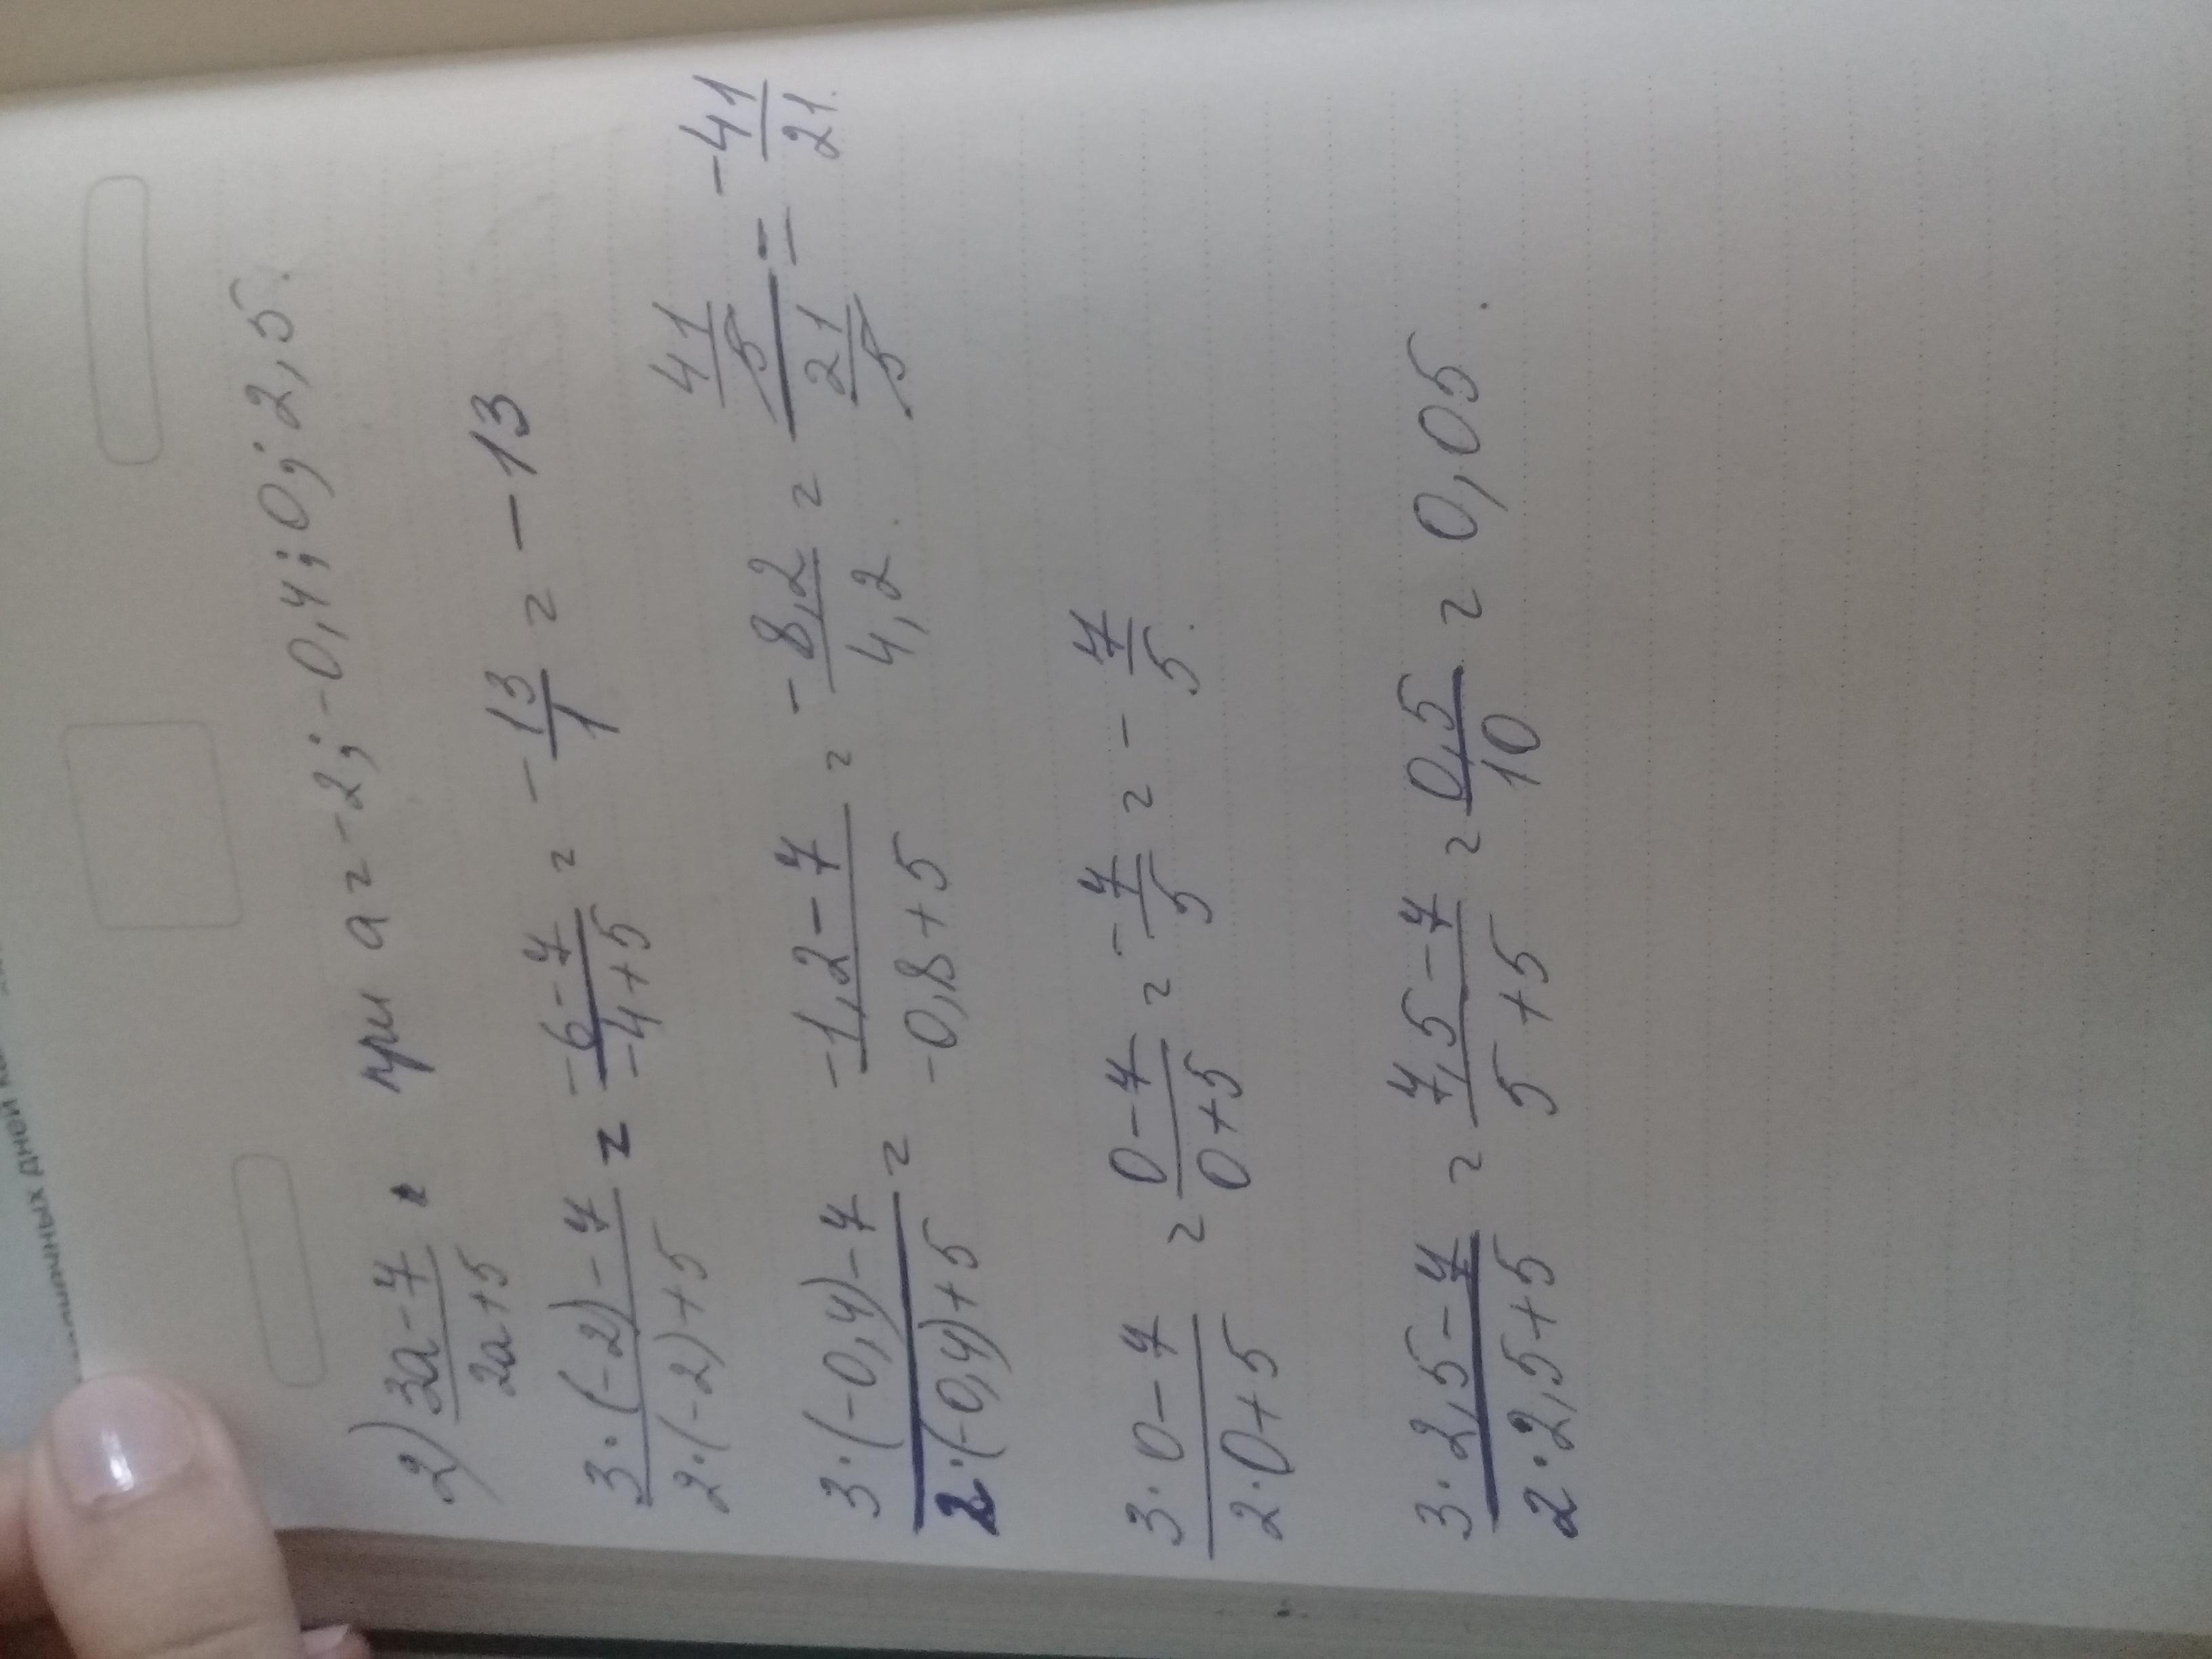 2) \frac{3a-7}{2a+5}, при a=-2; -0,4; 0; 2,5.
\frac{3·(-2)-7}{2·(-2)+5} = \frac{-6-7}{-4+5} = -\frac{13}{1} = -13
\frac{3·(-0,4)-7}{2·(-0,4)+5} = \frac{-1,2-7}{-0,8+5} = -\frac{8,2}{4,2} = \frac{\frac{41}{5}}{\frac{21}{5}} = -\frac{41}{21}.
\frac{3·0-7}{2·0+5} = \frac{0-7}{0+5} = -\frac{7}{5} = -\frac{7}{5}.
\frac{3·2,5-7}{2·2,5+5} = \frac{7,5-7}{5+5} = \frac{0,5}{10} = 0,05.